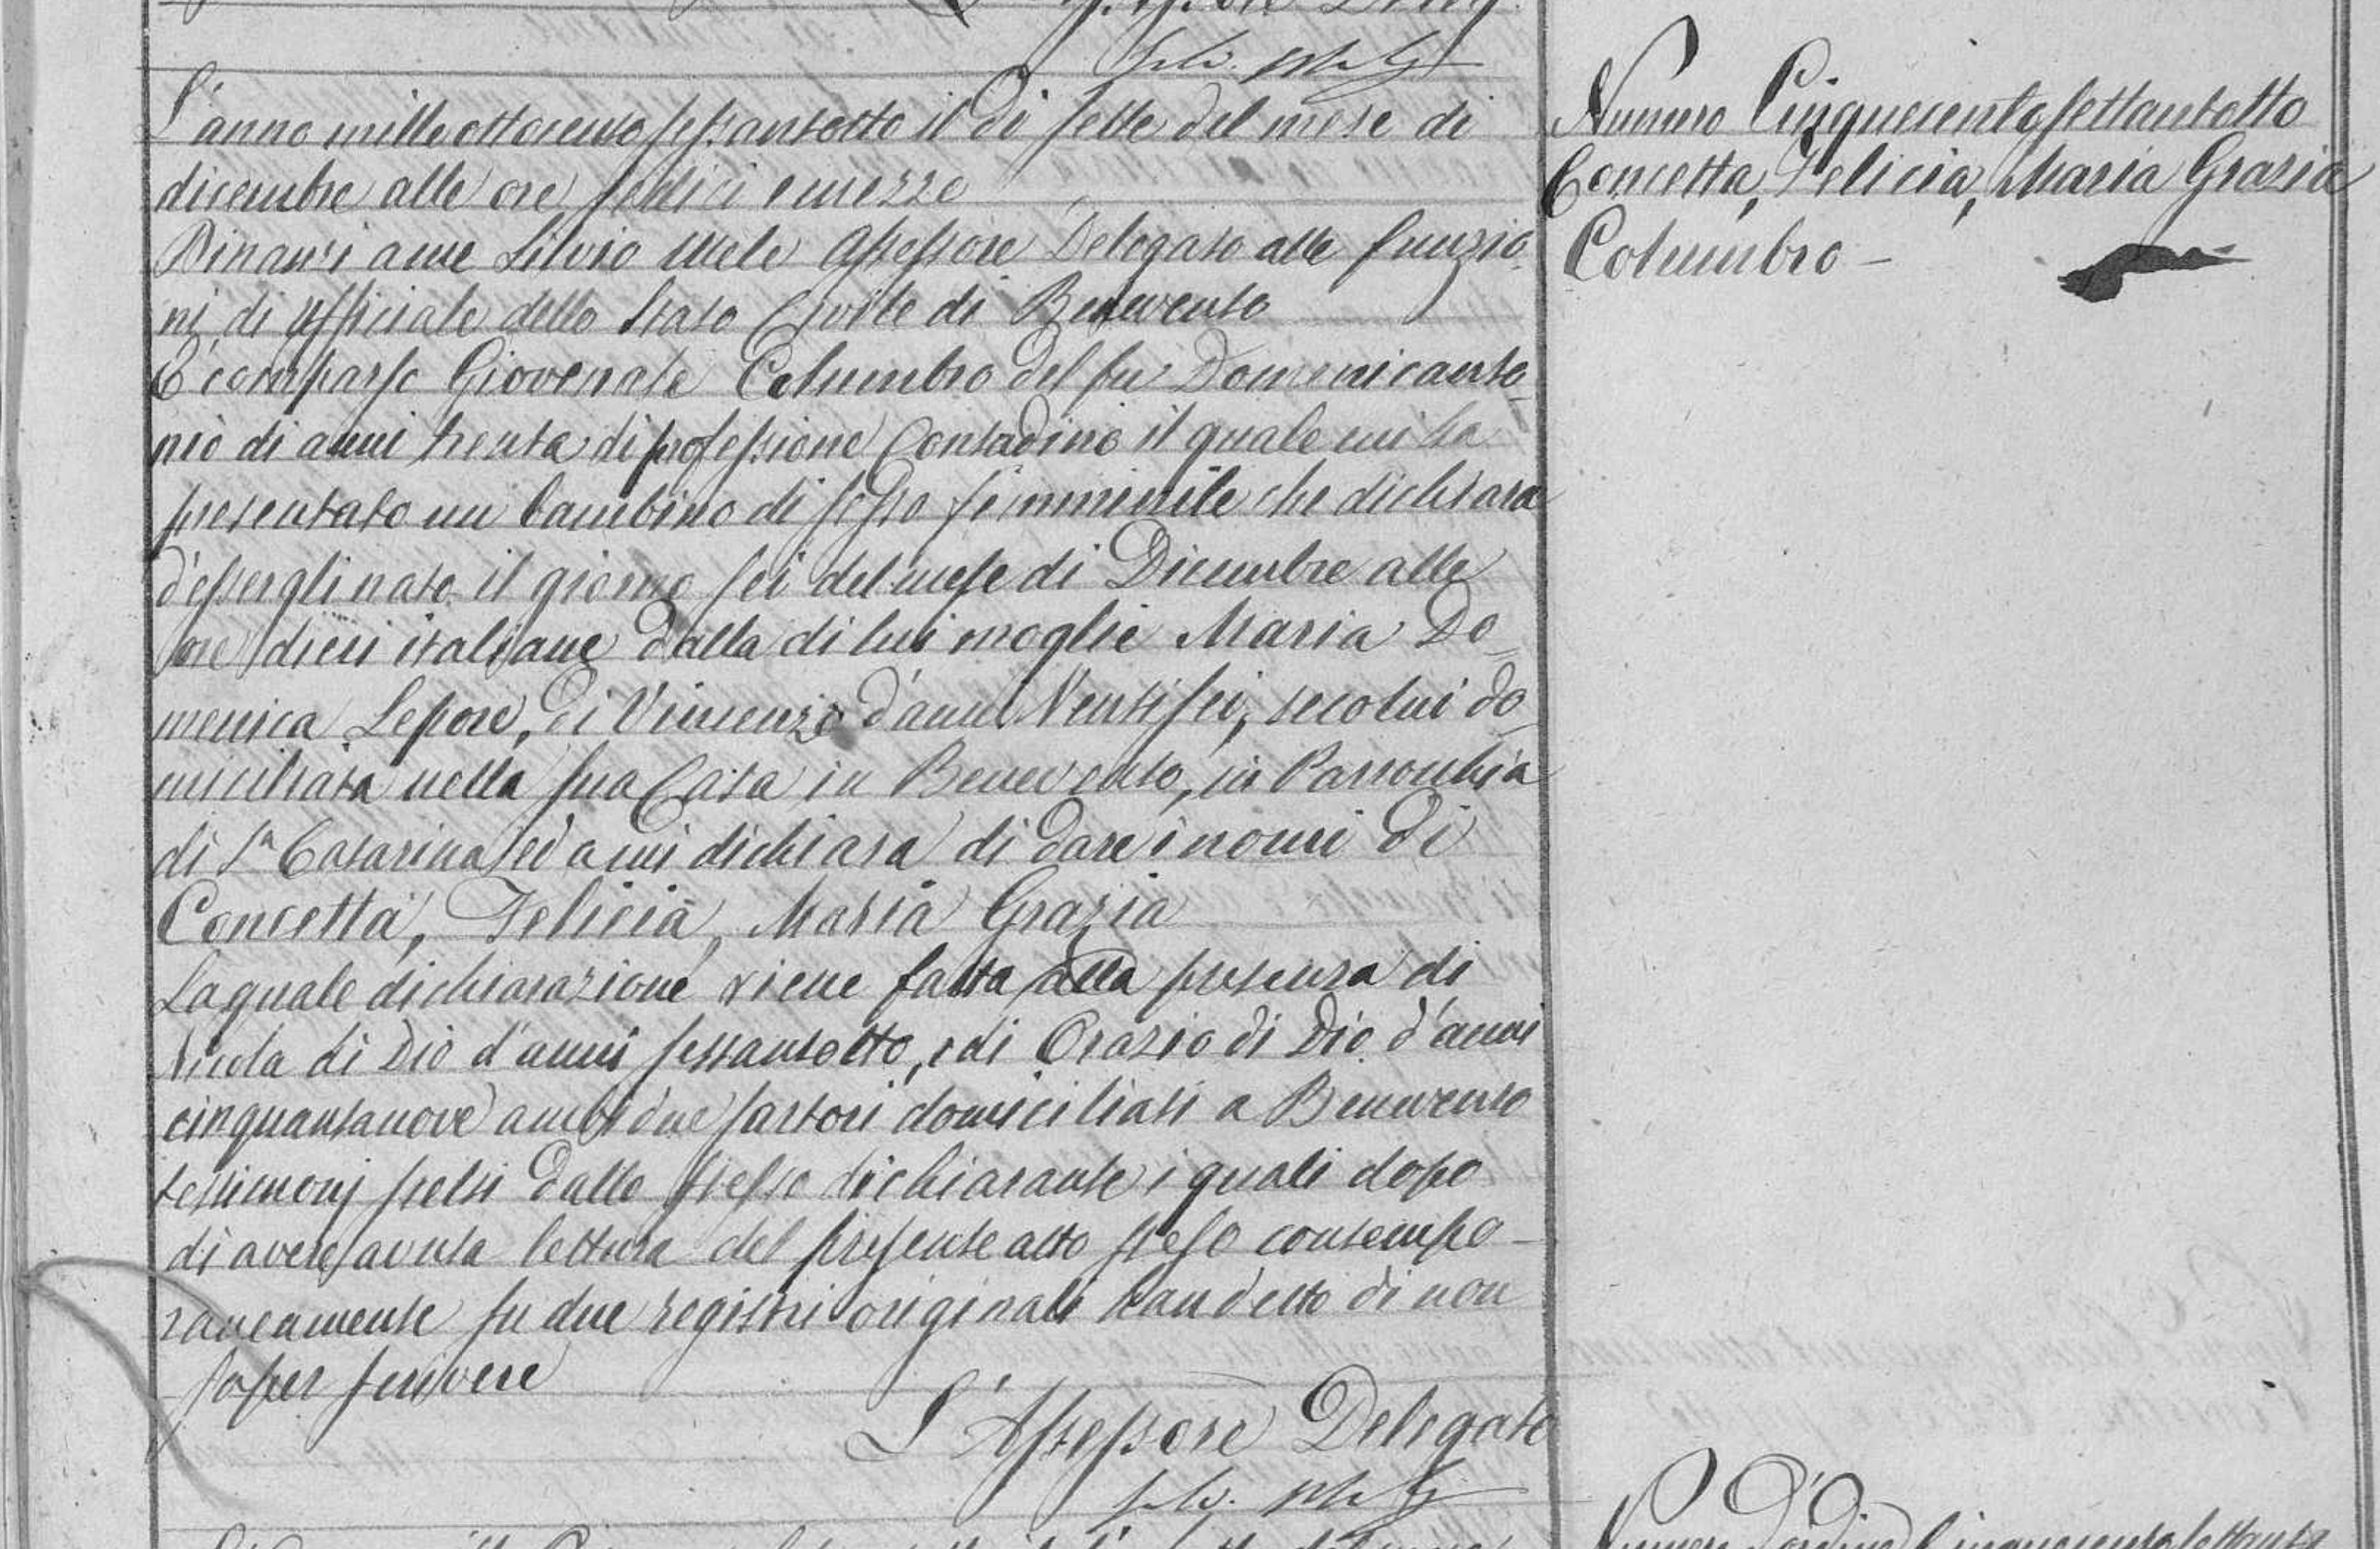 L'anno mille ottocento sessantotto il dì sette del mese di
dicembre alle ore sedici e mezzo
Dinanzi a me Silvio Mele Assessore Delegato alle funzio-
ni di Uffiziale dello Stato Civile di Benevento
È comparso Giovenale Columbro del fu Domenicanto-
nio di anni trenta di professione Contadino il quale mi ha
presentato un bambino di sesso femminile che dichiara
d'essergli nato il giorno sei del mese di Dicembre alle
ore dieci italiane dalla di lui moglie Maria Do-
menica Lepore, di Vincenzo d'anni Ventisei, secolui do-
miciliata nella sua Casa in Benevento, in Parrochia
di Sª Catarina, ed a cui dichiara di dare i nomi di
Concetta, Felicia, Maria Grazia
La quale dichiarazione viene fatta alla presenza di
Nicola di Dio d'anni sessantotto, e di Orazio di Dio d'anni
cinquantanove ambidue sartori domiciliati a Benevento
testimonj scelti dallo stesso dichiarante i quali dopo
di avere avuta lettura del presente atto steso contempo-
raneamente su due registri originali han detto di non
saper scrivere
L'Assessore Delegato
Numero Cinquecentosettantotto
Concetta, Felicia, Maria Grazia
Columbro -
Numero d'ordine Cinquecentosettanta